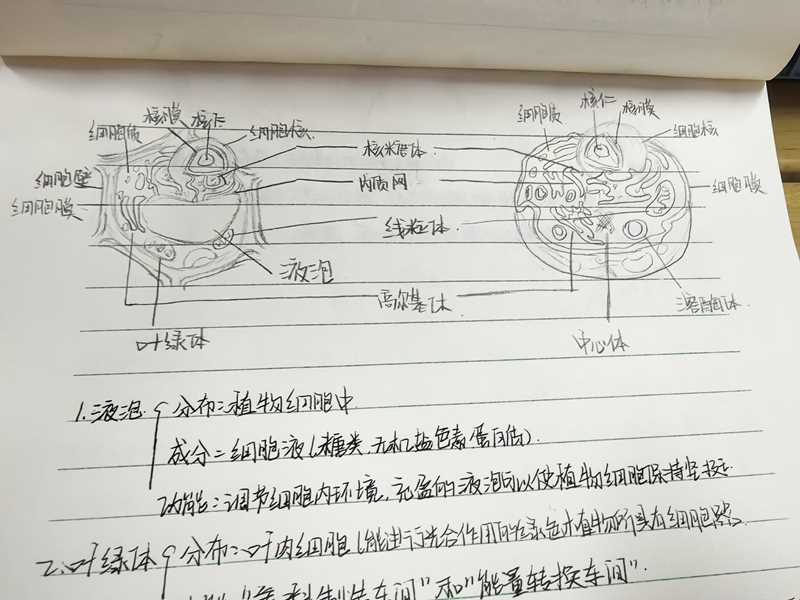 核膜 核仁
细胞质 细胞核
核糖体
细胞壁 内质网
细胞膜
线粒体
液泡
高尔基体
叶绿体
核仁 核膜
细胞质 细胞核
细胞膜
溶酶体
中心体
1.液泡 分布:植物细胞中
成分:细胞液(糖类,无机盐色素蛋白质).
功能:调节细胞内环境,充盈的液泡可以使植物细胞保持坚挺.
2.叶绿体 分布:叶肉细胞(能进行光合作用的绿色植物所具有细胞器)
车间"和"能量转换车间".